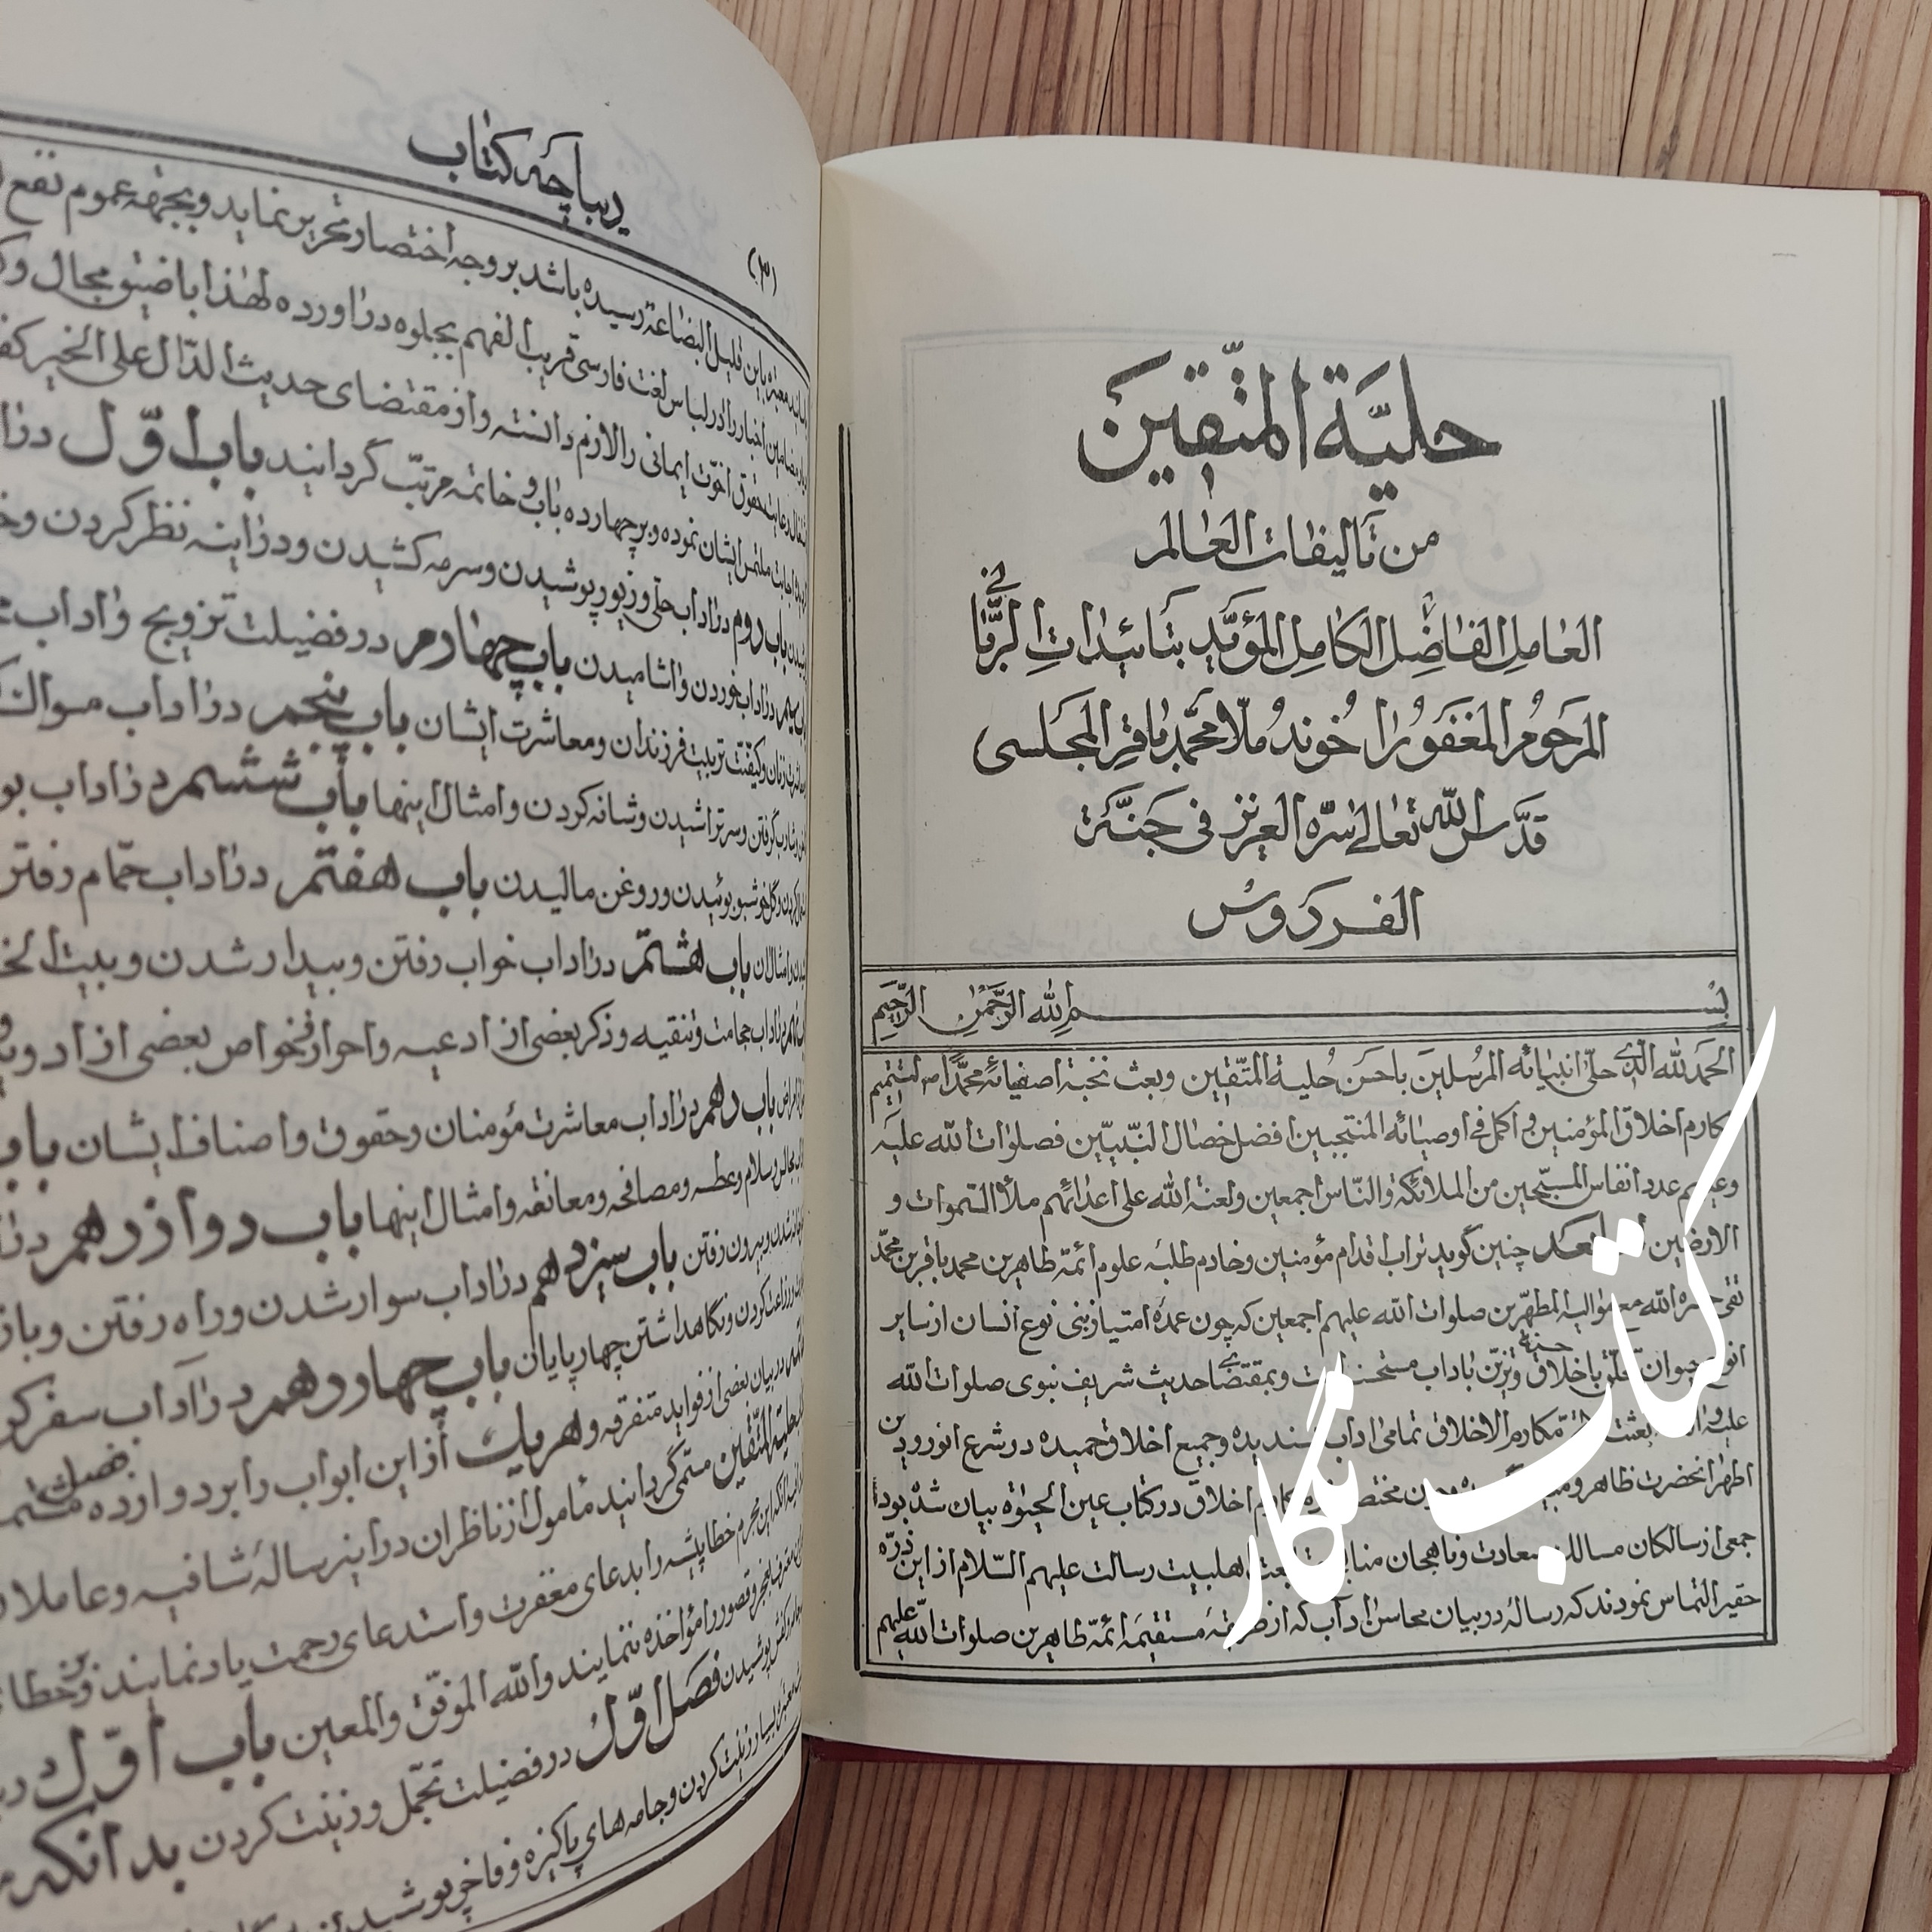 حلیة المتقین
من تألیفات العالم
العامل الفاضل الکامل المؤید بتائیدات الربانی
المرحوم المغفور اخوند ملا محمد باقر المجلسی
قدس الله تعالی سره العزیز فی جنة
الفردوس
بسم الله الرحمن الرحیم
الحمد لله الذی حلی انبیائه المرسلین باحسن حلیة المتقین وبعث نخبة اصفیائه محمدا لتتمیم
مکارم اخلاق المؤمنین و اکمل فی اوصیائه المنتجبین افضل خصال النبیین فصلوات الله علیه
وعلیهم عدد انفاس المسبحین من الملائکة والناس اجمعین ولعنة الله علی اعدائهم ملأ السموات و
الارضین بعد چنین گوید تراب اقدام مؤمنین وخادم طلبه علوم ائمه طاهرین محمد باقر بن محمد
تقی الله صلوات الله علیهم اجمعین که چون عمده امتیاز بنی نوع انسان از سایر
انواع حیوان باخلاق حسنه وتزین باداب مستحسنه است وبمقتضای حدیث شریف نبوی صلوات الله
علیه بعثت مکارم الاخلاق تمامی اداب پسندیده وجمیع اخلاق حمیده در شرع انور و دین
اطهر انحضرت ظاهر و اخلاق در کتاب عین الحیوة بیان شده بود
جمعی از سالکان مسالک سعادت وناهجان اهلبیت رسالت علیهم السلام از این ذره
حقیر التماس نمودند که رساله در بیان محاسن اداب که از طریقه مستقیمه ائمه طاهرین صلوات الله علیهم
دیباچه کتاب
(۳)
باین قلیل البضاعة رسیده باشد بر وجه اختصار تحریر نماید وبجهة عموم نفع
مضامین اخبار را در لباس لغت فارسی قریب الفهم بجلوه دراورده لهذا با ضیق مجال و
رعایت حقوق اخوت ایمانی را لازم دانسته واز مقتضای حدیث الدال علی الخیر
اجابت ملتمس ایشان نموده وبر چهارده باب و خاتمه مرتب گردانید باب اول در
باب دوم در اداب حلی وزیور پوشیدن وسرمه کشیدن ودر اینه نظر کردن و
در اداب خوردن واشامیدن باب چهارم در فضیلت تزویج واداب
زنان وکیفیت تربیت فرزندان ومعاشرت ایشان باب پنجم در اداب مسواک
وشارب گرفتن وسر تراشیدن وشانه کردن وامثال اینها باب ششم در اداب بو
خوشبو بوئیدن وروغن مالیدن باب هفتم در اداب حمام رفتن
وامثال ان باب هشتم در اداب خواب رفتن وبیدار شدن وبیت
در اداب حجامت وتنقیه وذکر بعضی از ادعیه واحراز وخواص بعضی از
باب دهم در اداب معاشرت مؤمنان وحقوق واصناف ایشان باب
مجالس وسلام وعطسه ومصافحه ومعانقه وامثال اینها باب دوازدهم در
وبیرون رفتن باب سیزدهم در اداب سوار شدن وراه رفتن وباز
وزراعت کردن ونگاهداشتن چهارپایان باب چهاردهم در اداب سفر
در بیان بعضی از فواید متفرقه وهر یک از این ابواب را بر دوازده فصل
بحلیة المتقین مسمی گردانید مامول از ناظران در این رساله شافیه وعاملان
مجرم خطاپیشه را بدعای مغفرت واستدعای رحمت یاد نمایند
وقصور را مؤاخذه ننمایند والله الموفق والمعین باب اول در
پوشیدن فصل اول در فضیلت تجمل وزینت کردن بدانکه
زینت کردن وجامه های پاکیزه وفاخر پوشیدن
کتاب نگار